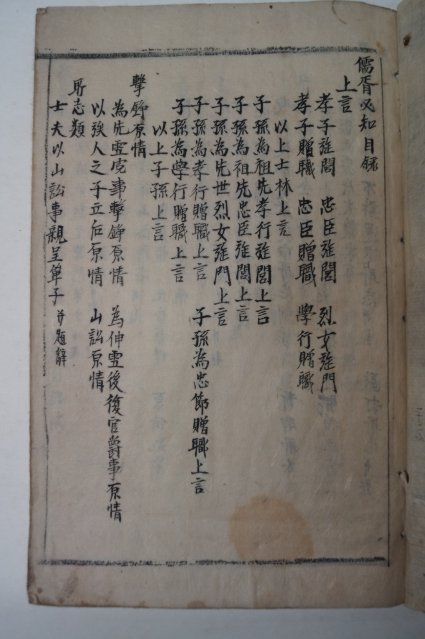 儒胥必知目録
上言
孝子㫌閭 忠臣㫌閭 烈女㫌門
孝子贈職 忠臣贈職 學行贈職
以上士林上言
子孫為祖先孝行㫌閭上言
子孫為祖先忠臣㫌閭上言
子孫為先世烈女㫌門上言
子孫為孝行贈職上言 子孫為忠節贈職上言
子孫為學行贈職上言
以上子孫上言
擊錚原情
為先㱏事擊錚原情 為伸雪後復官爵事原情
以殀人之子立后原情 山訟原情
所志類
士夫以山訟事親呈單子 并題辭